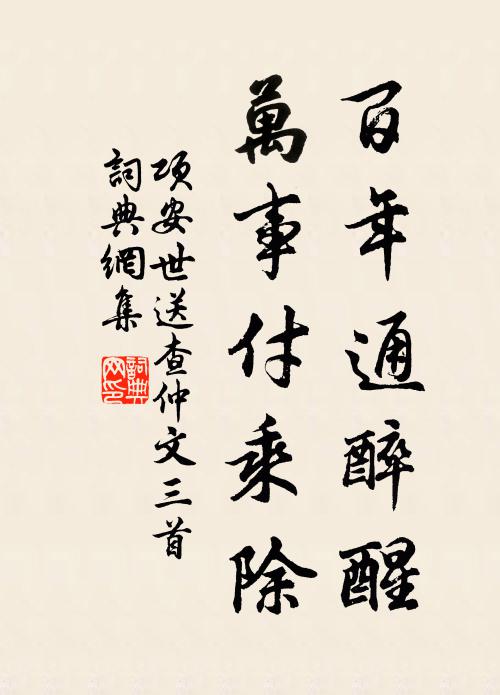 百年通醉醒
萬事付乘除
項安世送查仲文三首
詞典網集
詞典網印